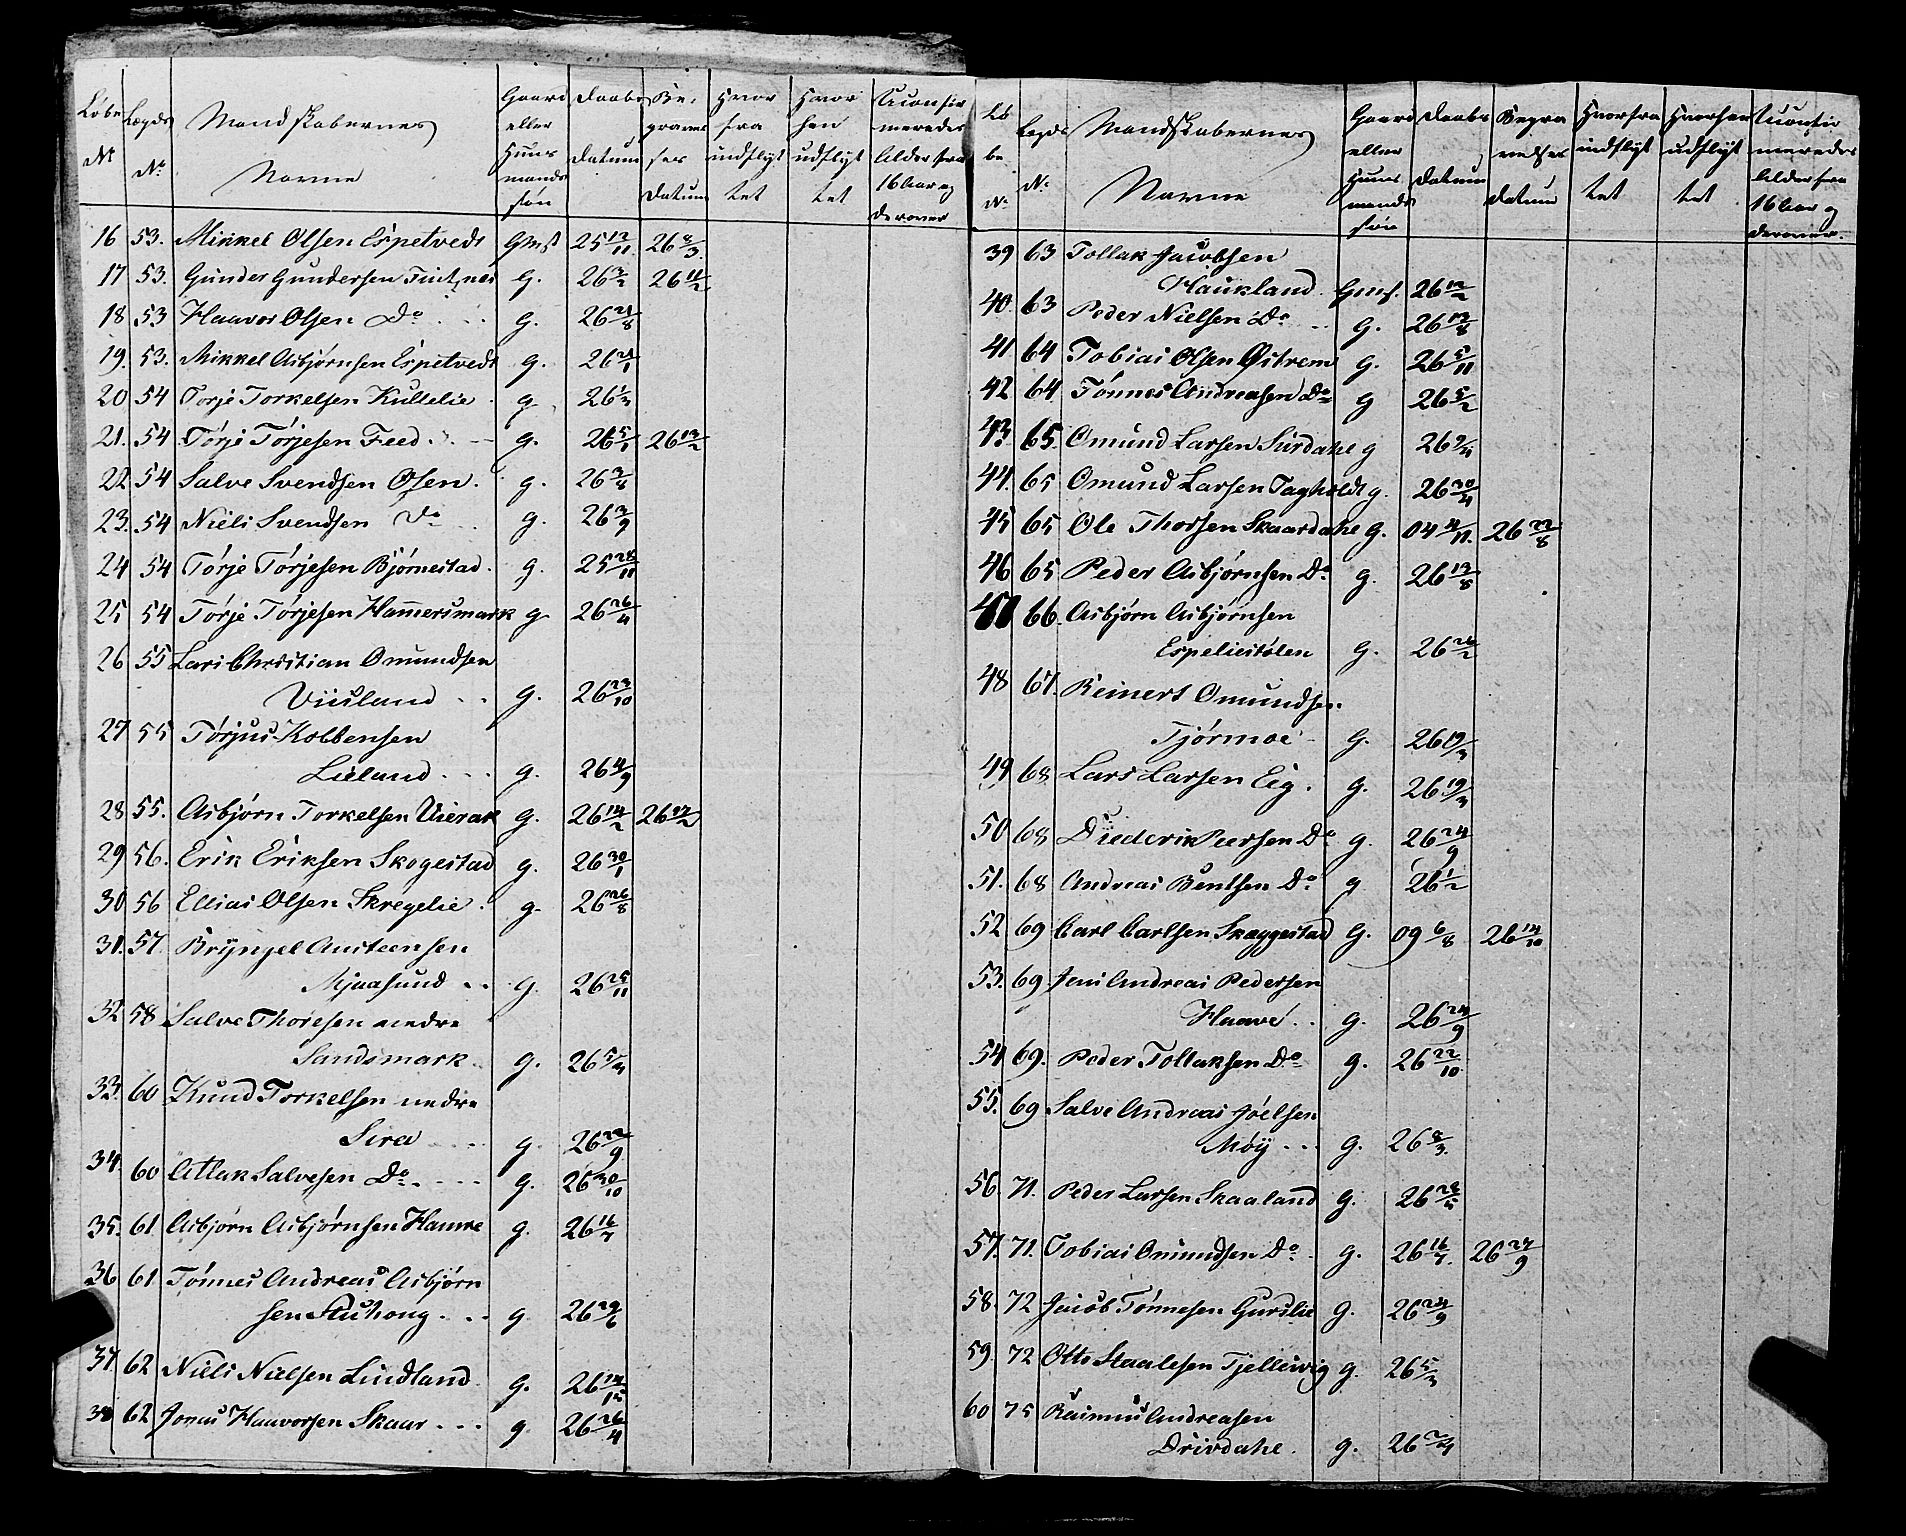 Løbe Lægds Mandskabernes Gaard Daabs Be- Hvor Hvor Uconfir
eller graveel fra hen meredes
No No Huus Datum ses indflyt udflyt Alder fra
Navne mands Datum tet tet 16 Aar og
søn derover
16 53. Mikkel Olsen Espetvedt Gmst 25 12/11 26 8/3
17 53. Gunder Gundersen g. 26 3/2 26 11/2
18 53 Haavor Olsen Do g. 26 21/8
19. 53. Mikkel Asbjørnsen Espetvedt g. 26 21/1
20 54 Torje Torkelsen Kullelie g 26 1/3
21. 54 Tørje Tørjesen Feed g. 26 5/1 26 13/2
22 54 Salve Svendsen Osen g. 26 3/8
23. 54 Niels Svendsen Do g. 26 3/9
24 54 Tørje Tørjesen Bjørnestad g. 25 28/11
25 54 Tørje Tørjesen Hamersmark g 26 26/4
26 55 Lars Christian Omundsen
Viuland g. 26 23/10
27 55 Tørjus Kolbensen
Lieland g. 26 4/9
28 55. Asbjørn Torkelsen Vierak g. 26 14/2 26 27/2
29 56. Erik Eriksen Skogestad g. 26 30/1
30 56 Ellias Olsen Skregelie g. 26 26/8
31. 57. Bryngel Austeensen
Mjaasund g. 26 25/11
32 58 Salve Thorsen nedre
Sandsmark g. 26 5/3
33. 60 Knud Torkelsen nedre
Sira g. 26 22/9
34. 60 Atlak Salvesen Do g. 26 30/10
35. 61 Asbjørn Asbjørnsen Hamre g. 26 16/7
36 61 Tønnes Andreas Asbjørn
sen Stuhoug g. 26 29/6
37 62 Niels Nielsen Lindland g. 26 14/12
38 62 Jonas Haavorsen Skaar g. 26 26/4
Lø Lægds Mandskabernes Gaard Daabs Begra Hvorfra Hvorhen Uconfir
be eller velses indflyt udflyt meredes
No No Huus Datum Datum tet tet Alder fra
Navne mands 16 Aar og
søn derover.
39 63 Tollak Jacobsen
Haukland Gms. 26 12/2
40. 63 Peder Nielsen Do g. 26 13/8
41 64 Tobias Olsen Østrem g. 26 5/11
42 64 Tønnes Andreasen Do g 26 5/2
43 65. Omund Larsen Surdahe g 26 9/4
44. 65 Omund Larsen Tagholdt g. 26 30/4
45 65 Ole Thorsen Skaardahe g. 04 4/11. 26 22/8
46 65 Peder Asbjørnsen Do g. 26 13/8
47 66 Asbjørn Asbjørnsen
Espeliestølen g. 26 26/2
48 67. Reinert Omundsen
Tjørmoe g. 26 19/3
49 68 Lars Larsen Eig g. 26 19/3
50 68 Diederik Peersen Do g. 26 24/9
51. 68 Andreas Bentsen Do g 26 1/2
52 69 Carl Carlsen Skoggestad g. 09 6/8 26 14/10
53. 69 Jens Andreas Pedersen
Haave g. 26 24/9
54 69. Peder Tollaksen Do g. 26 22/10
55. 69 Salve Andreas Joelsen
Møÿ g. 26 8/3.
56. 71. Peder Larsen Skaaland g. 26 28/5
57. 71. Tobias Omundsen Do g. 26 16/7. 26 27/9
58. 72 Jacob Tønnesen Gurslie g. 26 24/9
59. 72 Otto Staalesen Tjellevig g. 26 5/3
60 75 Rasmus Andreasen
Drivdahe. g. 26 2/4